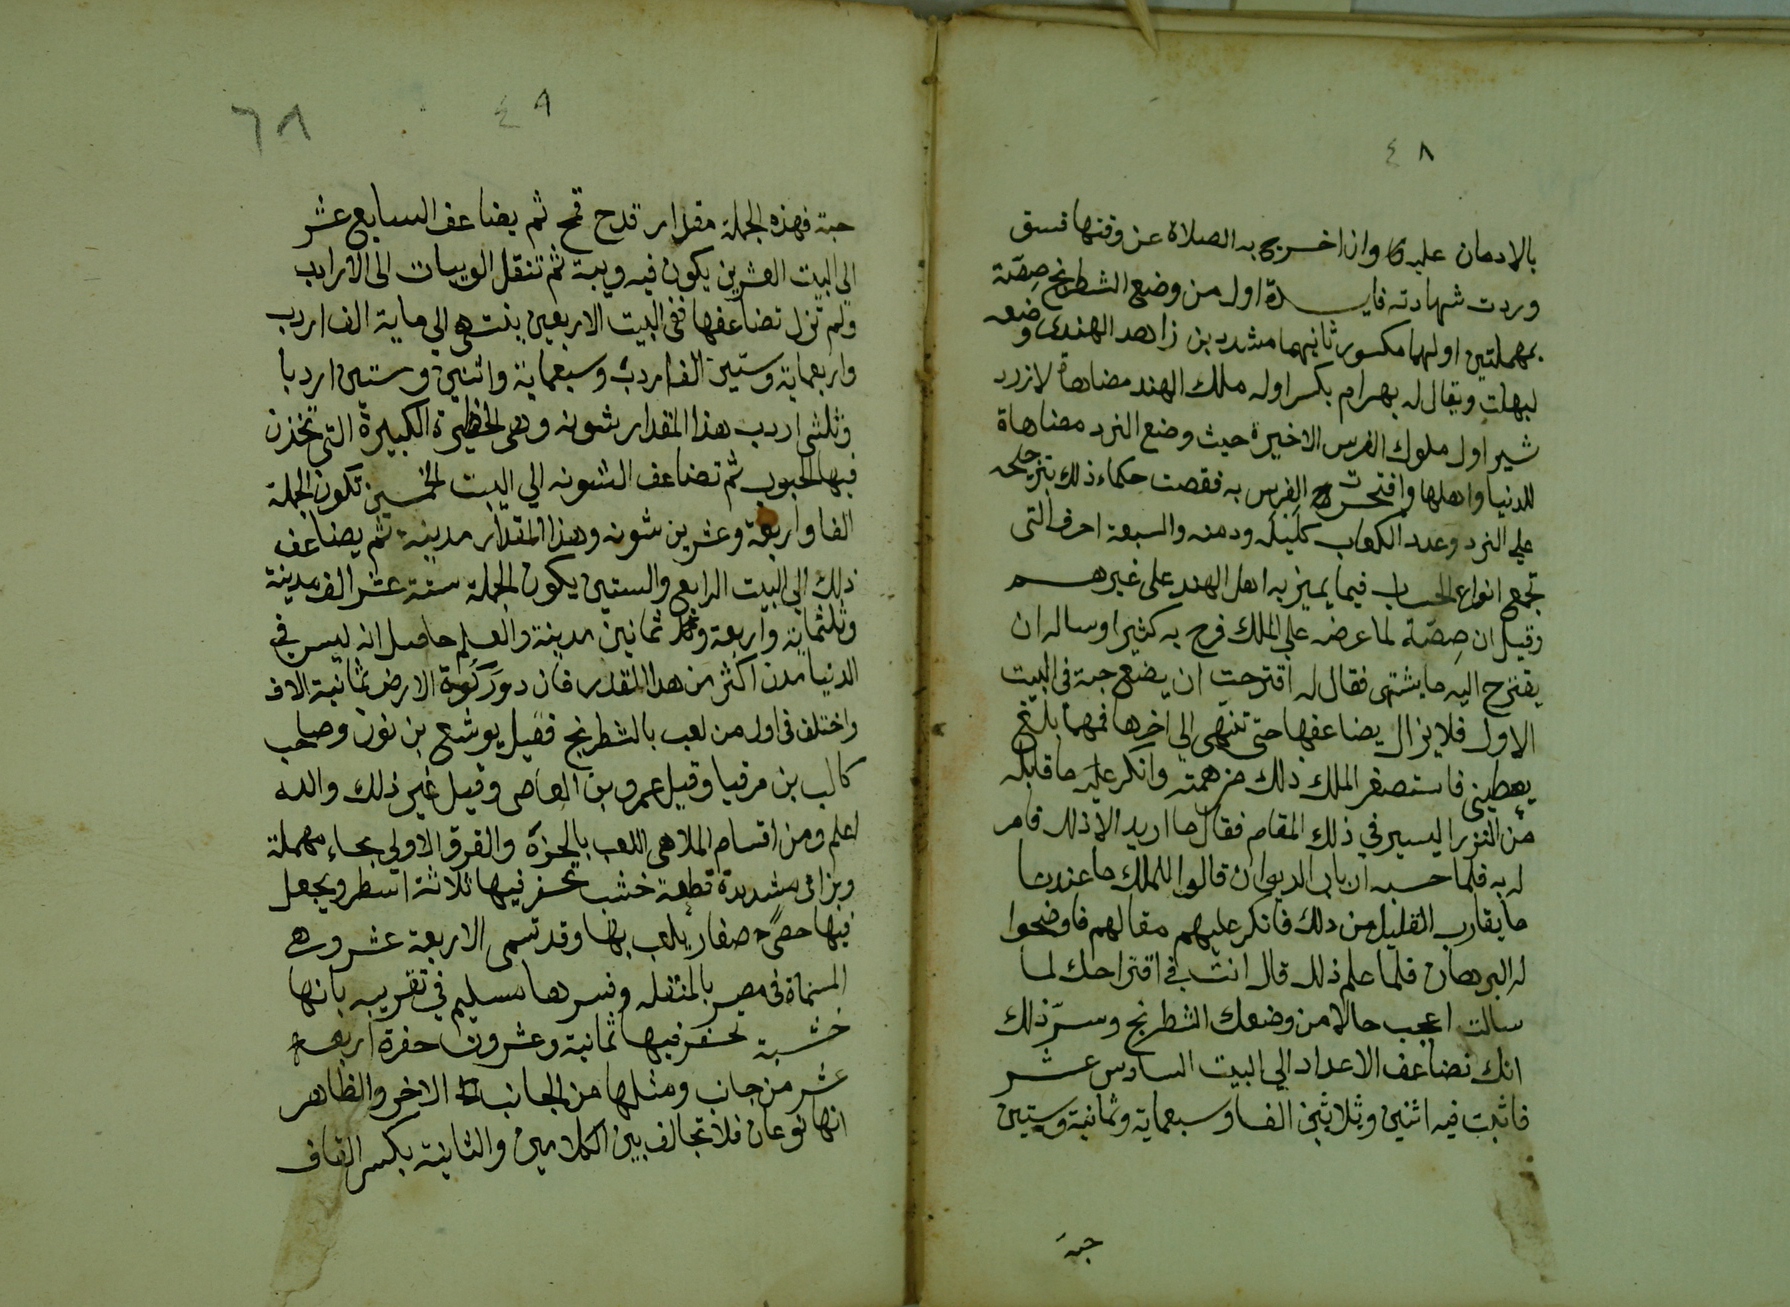 ٤٨
بالادمان عليه وان اخرج به الصلاة عن وقتها فسق
وردت شهادته فايدة اول من وضع الشطرنج صصة
بمهملتين اولهما مكسور ثانيهما مشدد بن زاهد الهندى وضعه
لبهلت ويقال له بهرام بكسر اوله ملك الهند مضاهاة لازدد
شير اول ملوك الفرس الاخيرة حيث وضع النرد مضاهاة
للدنيا واهلها وافتخرت الفرس به فقصت حكماء ذلك بترجيحه
على النرد وعدد الكعاب كليله ودمنه والسبعة احرف التى
تجمع انواع الحساب فيما يميز به اهل الهند على غيرهم
وقيل ان صصة لما عرضه على الملك فرح به كثيرا وساله ان
يقترح اليه ما يشتهى فقال له اقترحت ان يضع حبة فى البيت
الاول فلا يزال يضاعفها حتى تنتهى الى اخرها فمهما بلغ
يعطينى فاستصغر الملك ذلك من همته وانكر عليه ما قابله
من النزر اليسير في ذلك المقام فقال ما اريد الا ذلك فامر
له به فلما حسبه ارباب الديوان قالوا للملك ما عندنا
ما يقارب القليل من ذلك فانكر عليهم مقالهم فاوضحوا
له البرهان فلما علم ذلك قال انت في اقتراحك لما
سالت اعجب حالا من وضعك الشطرنج وسر ذلك
انك تضاعف الاعداد الى البيت السادس عشر
فاثبت فيه اثنين وثلاثين الفا وسبعماية وثمانية وستين
حبة
٤٩
٦٨
حبة فهذه الجملة مقدار قدح قمح ثم يضاعف السابع عشر
الى البيت العشرين يكون فيه ويبة ثم تنقل الويبات الى الارادب
ولم تزل تضاعفها ففى البيت الاربعين ينتهى الى ماية الف اردب
واربعماية وستين الف اردب وسبعماية واثنين وستين اردبا
وثلثى اردب هذا المقدار شونه وهى الحظيرة الكبيرة التى تخذن
فيها الحبوب ثم تضاعف الشونه الى البيت الخمسين تكون الجملة
الفا واربعة وعشرين شونه وهذا المقدار مدينة ثم يضاعف
ذلك الى البيت الرابع والستين يكون الجملة ستة عشر الف مدينة
وثلثماية واربعة وثمانين مدينة والعلم حاصل انه ليس في
الدنيا مدن اكثر من هذا المقدر فان دور كورة الارض ثمانية الاف
واختلف فى اول من لعب بالشطرنج فقيل يوشع بن نون وصاحب
كالب بن مرقيا وقيل عمرو بن العاصى وقيل غير ذلك والله
اعلم ومن اقسام الملاهى اللعب بالحزة والقرق الاولى بحاء مهملة
وبزاى مشددة قطعة خشب تحفر فيها ثلاثة اسطر ويجعل
فيها حصى صغار يلعب بها وقد تسمى الاربعة عشر وهى
المسماة فى مصر بالمنقله وفسرها مسليم في تقريبه بانها
خشبة تحفر فيها ثمانية وعشرون حفرة اربعة
عشر من جانب ومثلها من الجانب الاخر والظاهر
انها نوعان فلا تخالف بين الكلامين والثانية بكسر القاف